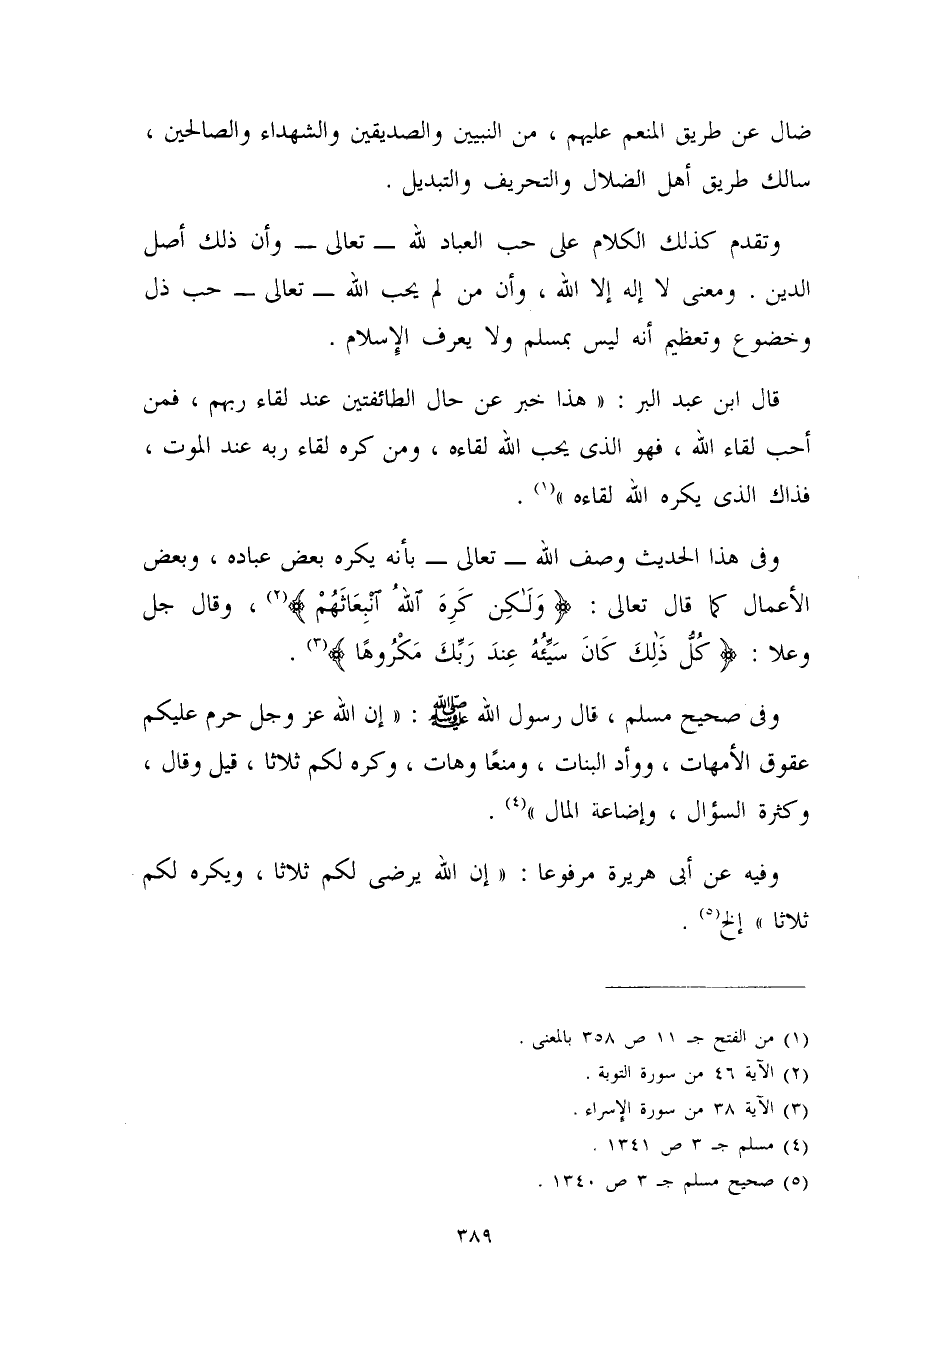 ضال عن طريق المنعم عليهم ، من النبيين والصديقين والشهداء والصالحين ،
سالك طريق أهل الضلال والتحريف والتبديل .
وتقدم كذلك الكلام على حب العباد لله ــ تعالى ــ وأن ذلك أصل
الدين . ومعنى لا إله إلا الله ، وأن من لم يحب الله ــ تعالى ــ حب ذل
وخضوع وتعظيم أنه ليس بمسلم ولا يعرف الإسلام .
قال ابن عبد البر : « هذا خبر عن حال الطائفتين عند لقاء ربهم ، فمن
أحب لقاء الله ، فهو الذى يحب الله لقاءه ، ومن كره لقاء ربه عند الموت ،
فذاك الذى يكره الله لقاءه »(١) .
وفى هذا الحديث وصف الله ــ تعالى ــ بأنه يكره بعض عباده ، وبعض
الأعمال كما قال تعالى : ﴿ وَلَٰكِن كَرِهَ ٱللهُ ٱنْبِعَاثَهُمْ ﴾(٢) ، وقال جل
وعلا : ﴿ كُلُّ ذَٰلِكَ كَانَ سَيِّئُهُ عِندَ رَبِّكَ مَكْرُوهًا ﴾(٣) .
وفى صحيح مسلم ، قال رسول الله ﷺ : « إن الله عز وجل حرم عليكم
عقوق الأمهات ، ووأد البنات ، ومنعًا وهات ، وكره لكم ثلاثا ، قيل وقال ،
وكثرة السؤال ، وإضاعة المال »(٤) .
وفيه عن أبى هريرة مرفوعا : « إن الله يرضى لكم ثلاثا ، ويكره لكم
ثلاثا » إلخ(٥) .
(١) من الفتح جـ ١١ ص ٣٥٨ بالمعنى .
(٢) الآية ٤٦ من سورة التوبة .
(٣) الآية ٣٨ من سورة الإسراء .
(٤) مسلم جـ ٣ ص ١٣٤١ .
(٥) صحيح مسلم جـ ٣ ص ١٣٤٠ .
٣٨٩